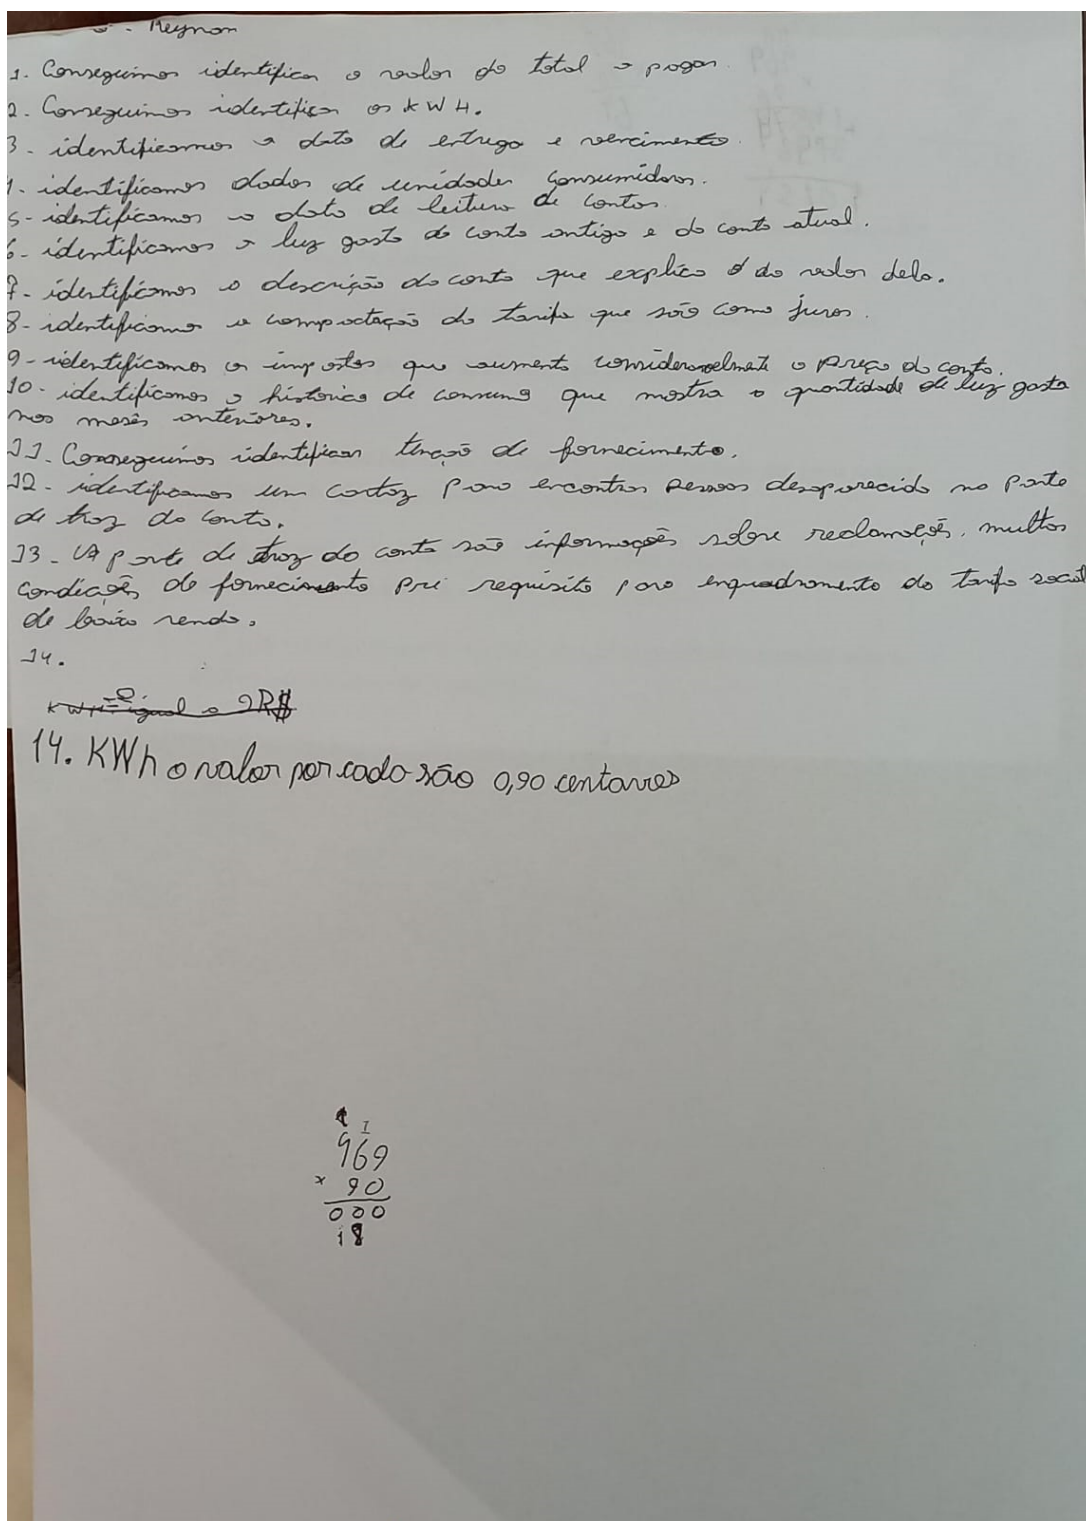 Reynan
1. Conseguimos identificar o valor do total a pagar.
2. Conseguimos identificar os KWH.
3- identificamos a data de entrega e vencimento.
4- identificamos dados de unidades consumidoras.
5- identificamos a data de leitura de contas.
6- identificamos a luz gasta da conta antiga e da conta atual.
7- identificamos a descrição da conta que explica do valor dela.
8- identificamos a tarifa que são como juros.
9- identificamos os impostos que aumenta consideravelmente o preço da conta.
10- identificamos o histórico de consumo que mostra a quantidade de luz gasta
nos mesês anteriores.
11- Conseguimos identificar tenção de fornecimento.
12- identificamos um cartaz para encontrar pessoas desaparecida na parte
de traz da conta.
13- A parte de traz da conta são informações sobre reclamações, multas
condições de fornecimento pré requisito para enquadramento da tarifa social
de baixa renda.
14.
KWH igual a 2R$
14. KWh o valor por cada são 0,90 centavos
1
969
× 90
000
18